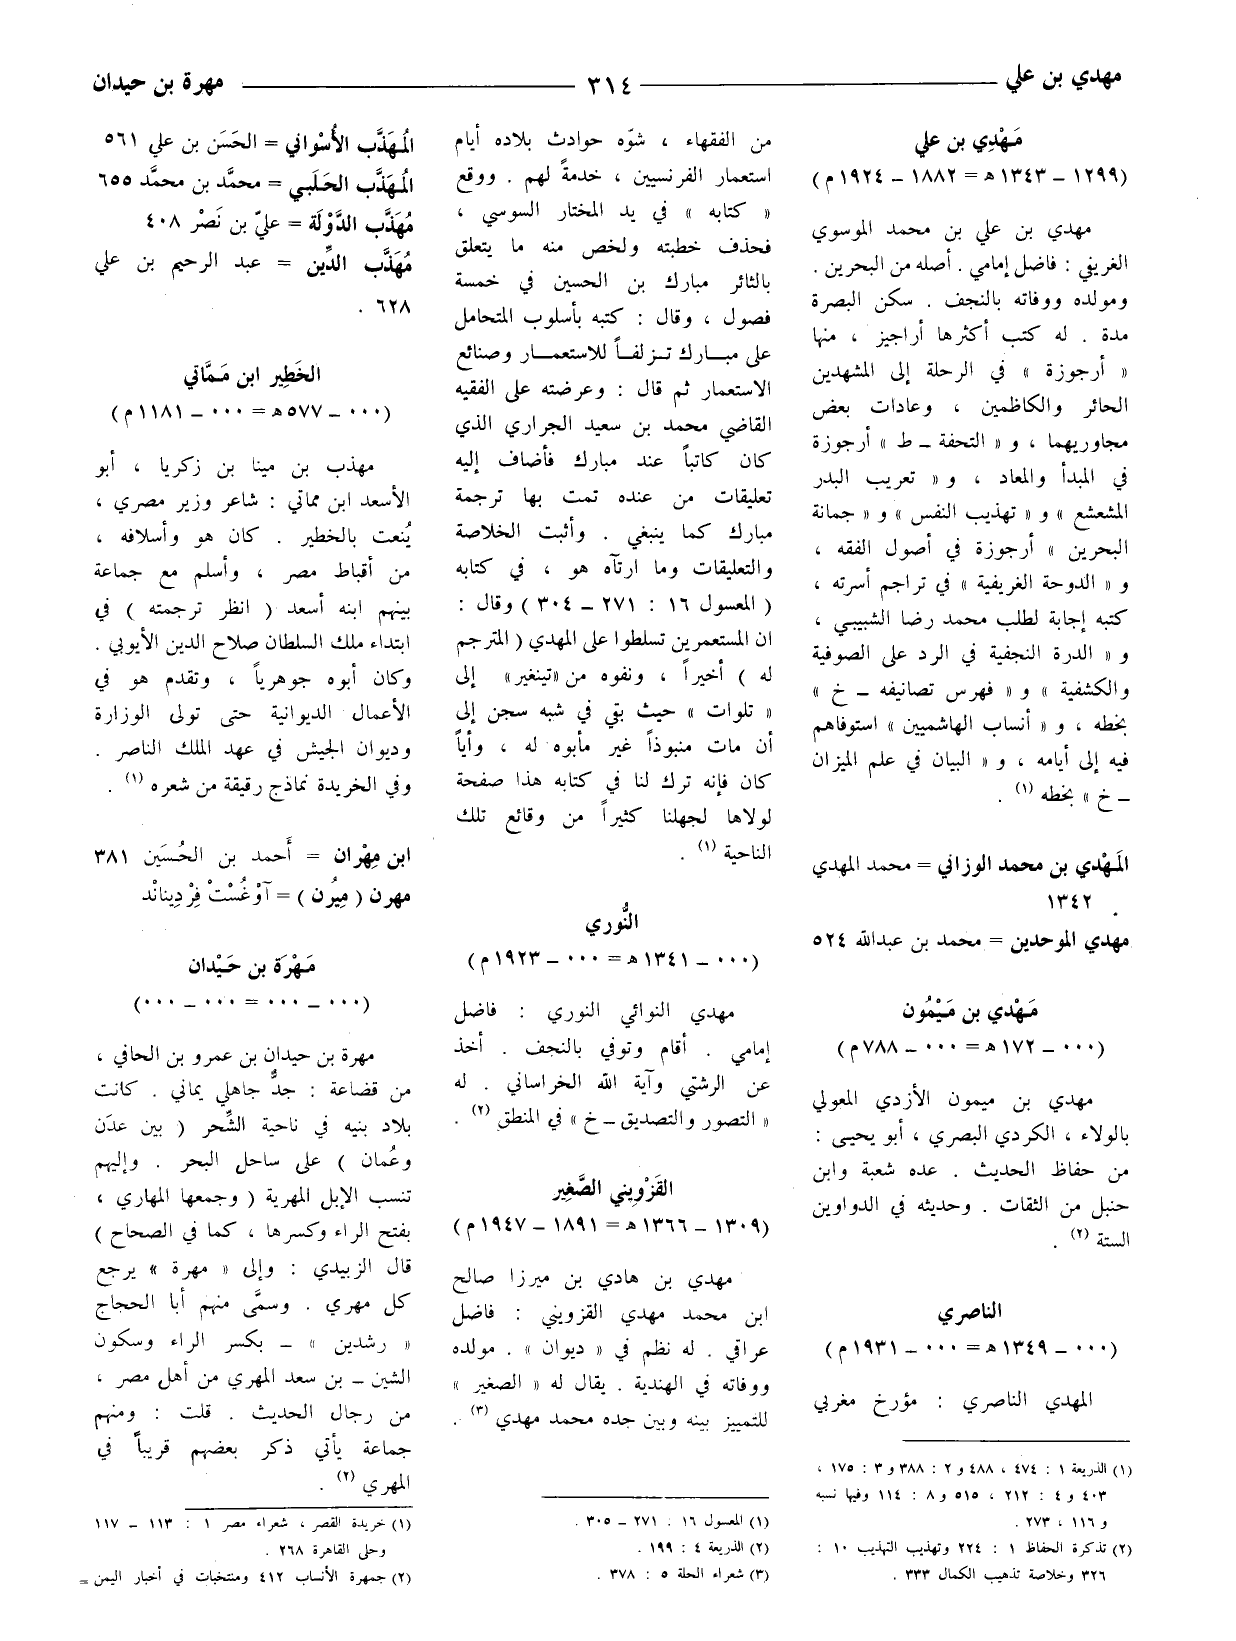 مهدي بن علي ــــ ٣١٤ ــــ مهرة بن حيدان
مَهْدِي بن علي
(١٢٩٩ ــ ١٣٤٣ ھ = ١٨٨٢ ــ ١٩٢٤ م)
مهدي بن علي بن محمد الموسوي
الغريفي : فاضل إمامي . أصله من البحرين .
ومولده ووفاته بالنجف . سكن البصرة
مدة . له كتب أكثرها أراجيز ، منها
« أرجوزة » في الرحلة إلى المشهدين
الحائر والكاظمين ، وعادات بعض
مجاوريهما ، و « التحفة ــ ط » أرجوزة
في المبدأ والمعاد ، و « تعريب البدر
المشعشع » و « تهذيب النفس » و « جمانة
البحرين » أرجوزة في أصول الفقه ،
و « الدوحة الغريفية » في تراجم أسرته ،
كتبه إجابة لطلب محمد رضا الشبيبي ،
و « الدرة النجفية في الرد على الصوفية
والكشفية » و « فهرس تصانيفه ــ خ »
بخطه ، و « أنساب الهاشميين » استوفاهم
فيه إلى أيامه ، و « البيان في علم الميزان
ــ خ » بخطه (١) .
المَهْدي بن محمد الوزاني = محمد المهدي
١٣٤٢
مهدي الموحدين = محمد بن عبدالله ٥٢٤
مَهْدي بن مَيْمُون
(٠٠٠ ــ ١٧٢ ھ = ٠٠٠ ــ ٧٨٨ م)
مهدي بن ميمون الأزدي المعولي
بالولاء ، الكردي البصري ، أبو يحيى :
من حفاظ الحديث . عده شعبة وابن
حنبل من الثقات . وحديثه في الدواوين
الستة (٢) .
الناصري
(٠٠٠ ــ ١٣٤٩ ھ = ٠٠٠ ــ ١٩٣١ م)
المهدي الناصري : مؤرخ مغربي
(١) الذريعة ١ : ٤٧٤ ، ٤٨٨ و ٢ : ٣٨٨ و ٣ : ١٧٥ ،
٤٠٣ و ٤ : ٢١٢ ، ٥١٥ و ٨ : ١١٤ وفيها نسبه
و ١١٦ ، ٢٧٣ .
(٢) تذكرة الحفاظ ١ : ٢٢٤ وتهذيب التهذيب ١٠ :
٣٢٦ وخلاصة تذهيب الكمال ٣٣٣ .
من الفقهاء ، شوّه حوادث بلاده أيام
استعمار الفرنسيين ، خدمةً لهم . ووقع
« كتابه » في يد المختار السوسي ،
فحذف خطبته ولخص منه ما يتعلق
بالثائر مبارك بن الحسين في خمسة
فصول ، وقال : كتبه بأسلوب المتحامل
على مبــارك تــزلفــاً للاستعمــار وصنائع
الاستعمار ثم قال : وعرضته على الفقيه
القاضي محمد بن سعيد الجراري الذي
كان كاتباً عند مبارك فأضاف إليه
تعليقات من عنده تمت بها ترجمة
مبارك كما ينبغي . وأثبت الخلاصة
والتعليقات وما ارتآه هو ، في كتابه
( المعسول ١٦ : ٢٧١ ــ ٣٠٤ ) وقال :
ان المستعمرين تسلطوا على المهدي ( المترجم
له ) أخيراً ، ونفوه من «تينغير» إلى
« تلوات » حيث بقي في شبه سجن إلى
أن مات منبوذاً غير مأبوه له ، وأياً
كان فإنه ترك لنا في كتابه هذا صفحة
لولاها لجهلنا كثيراً من وقائع تلك
الناحية (١) .
النُّوري
(٠٠٠ ــ ١٣٤١ ھ = ٠٠٠ ــ ١٩٢٣ م)
مهدي النوائي النوري : فاضل
إمامي . أقام وتوفي بالنجف . أخذ
عن الرشتي وآية الله الخراساني . له
« التصور والتصديق ــ خ » في المنطق (٢) .
القَزْويني الصَّغِير
(١٣٠٩ ــ ١٣٦٦ ھ = ١٨٩١ ــ ١٩٤٧ م)
مهدي بن هادي بن ميرزا صالح
ابن محمد مهدي القزويني : فاضل
عراقي . له نظم في « ديوان » . مولده
ووفاته في الهندية . يقال له « الصغير »
للتمييز بينه وبين جده محمد مهدي (٣) .
(١) المعسول ١٦ : ٢٧١ ــ ٣٠٥ .
(٢) الذريعة ٤ : ١٩٩ .
(٣) شعراء الحلة ٥ : ٣٧٨ .
المُهَذَّب الأُسْواني = الحَسَن بن علي ٥٦١
المُهَذَّب الحَلَبي = محمَّد بن محمَّد ٦٥٥
مُهَذَّب الدَّوْلَة = عليّ بن نَصْر ٤٠٨
مُهَذَّب الدِّين = عبد الرحيم بن علي
٦٢٨ .
الخَطِير ابن مَمَّاتي
(٠٠٠ ــ ٥٧٧ ھ = ٠٠٠ ــ ١١٨١ م)
مهذب بن مينا بن زكريا ، أبو
الأسعد ابن مماتي : شاعر وزير مصري ،
يُنعت بالخطير . كان هو وأسلافه ،
من أقباط مصر ، وأسلم مع جماعة
بينهم ابنه أسعد ( انظر ترجمته ) في
ابتداء ملك السلطان صلاح الدين الأيوبي .
وكان أبوه جوهرياً ، وتقدم هو في
الأعمال الديوانية حتى تولى الوزارة
وديوان الجيش في عهد الملك الناصر .
وفي الخريدة نماذج رقيقة من شعره (١) .
ابن مِهْران = أَحمد بن الحُسَين ٣٨١
مهرن ( مِيرُن ) = آوْغُسْتْ فِرْدِينانْد
مَهْرَة بن حَيْدان
(٠٠٠ ــ ٠٠٠ = ٠٠٠ ــ ٠٠٠)
مهرة بن حيدان بن عمرو بن الحافي ،
من قضاعة : جدٌّ جاهلي يماني . كانت
بلاد بنيه في ناحية الشِّحر ( بين عدَن
وعُمان ) على ساحل البحر . وإليهم
تنسب الإبل المهرية ( وجمعها المهاري ،
بفتح الراء وكسرها ، كما في الصحاح )
قال الزبيدي : وإلى « مهرة » يرجع
كل مهري . وسمَّى منهم أبا الحجاج
« رشدين » ــ بكسر الراء وسكون
الشين ــ بن سعد المهري من أهل مصر ،
من رجال الحديث . قلت : ومنهم
جماعة يأتي ذكر بعضهم قريباً في
المهري (٢) .
(١) خريدة القصر ، شعراء مصر ١ : ١١٣ ــ ١١٧
وحلى القاهرة ٢٦٨ .
(٢) جمهرة الأنساب ٤١٢ ومنتخبات في أخبار اليمن =